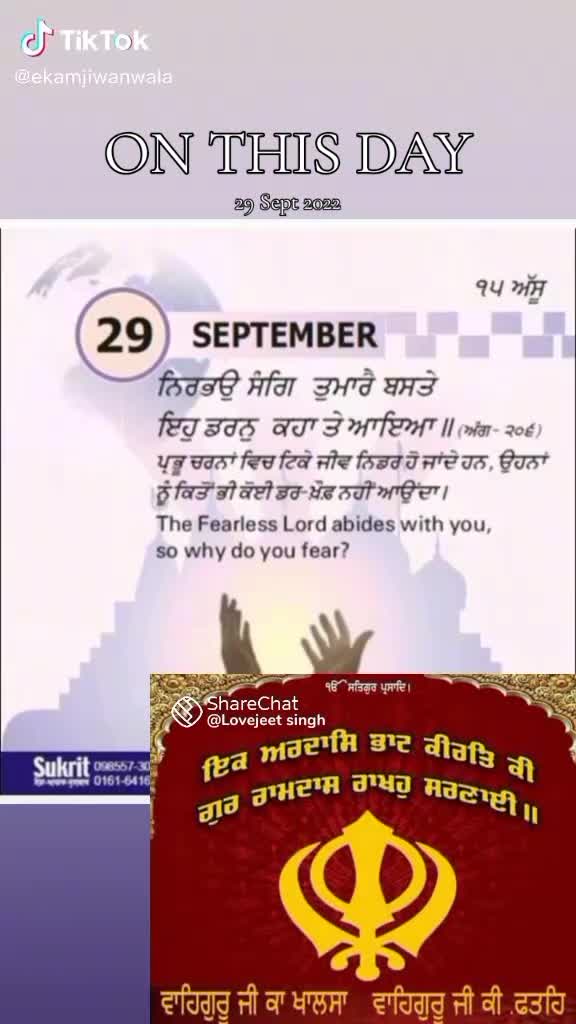 TikTok
@ekamjiwanwala
ON THIS DAY
29 Sept 2022
੧੫ ਅੱਸੂ
29 SEPTEMBER
ਨਿਰਭਉ ਸੰਗਿ ਤੁਮਾਰੈ ਬਸਤੇ
ਇਹੁ ਡਰਨੁ ਕਹਾ ਤੇ ਆਇਆ॥ (ਅੰਗ- ੨੦੬)
ਪ੍ਰਭੂ ਚਰਨਾਂ ਵਿਚ ਟਿਕੇ ਜੀਵ ਨਿਡਰ ਹੋ ਜਾਂਦੇ ਹਨ, ਉਹਨਾਂ
ਨੂੰ ਕਿਤੋਂ ਭੀ ਕੋਈ ਡਰ-ਖ਼ੌਫ਼ ਨਹੀਂ ਆਉਂਦਾ।
The Fearless Lord abides with you,
so why do you fear?
ੴ ਸਤਿਗੁਰ ਪ੍ਰਸਾਦਿ।
ShareChat
@Lovejeet singh
ਇਕ ਅਰਦਾਸਿ ਭਾਟ ਕੀਰਤਿ ਕੀ
ਗੁਰ ਰਾਮਦਾਸ ਰਾਖਹੁ ਸਰਣਾਈ॥
Sukrit 098557-30
0161-6416
ਵਾਹਿਗੁਰੂ ਜੀ ਕਾ ਖਾਲਸਾ ਵਾਹਿਗੁਰੂ ਜੀ ਕੀ ਫਤਹਿ